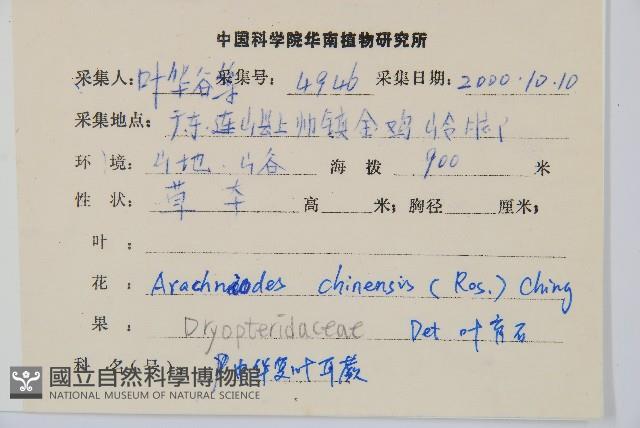 中国科学院华南植物研究所
采集人：叶华谷等 采集号：4946 采集日期：2000.10.10
采集地点：广东.连山县上帅镇金鸡岭
环境：山地.山谷 海拨 900 米
性状：草本 高 米；胸径 厘米；
叶：
花：Arachniodes chinensis (Ros.) Ching
果：Dryopteridaceae Det 叶育石
科名(号) 中华复叶耳蕨
國立自然科學博物館
NATIONAL MUSEUM OF NATURAL SCIENCE